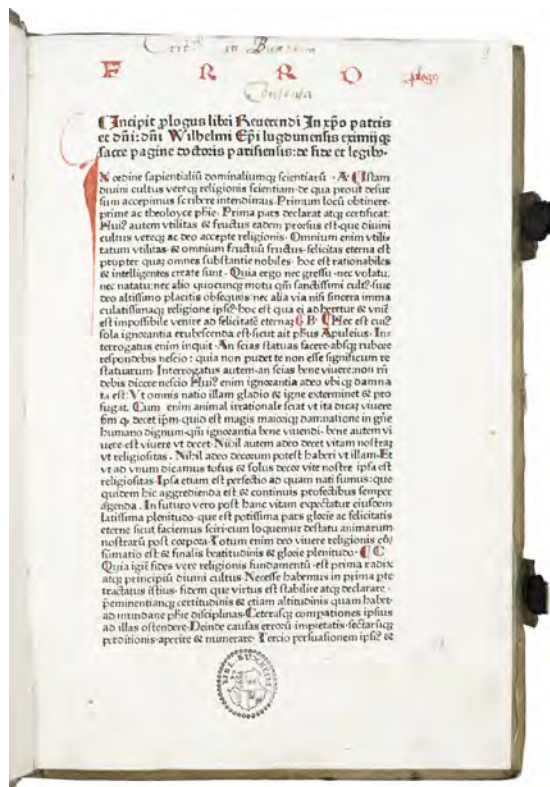 in Buxheim
F R R O plogus
¶Incipit plogus libri Reuerendi In xp̄o patris
et dn̄i: dn̄i Wilhelmi Ep̄i lugdunensis eximiiq;
sacre pagine doctoris parisiensis: de fide et legib9.
IN ordine sapientialiū dominaliumq; scientiarū · A ¶Istam
diuini cultus vereq; religionis scientiam·de qua prout desur
sum accepimus scribere intendimus· Primum locū obtinere·
prime ac theoloyce phīe· Prima pars declarat atq; certificat:
Hui9 autem vtilitas & fructus eadem prorsus est·que diuini
cultus vereq; ac deo accepte religionis· Omnium enim vtilis
tatum vtilitas·& omnium fructuū fructus·felicitas eterna est
propter quaȝ omnes substantie nobiles· hoc est rationabiles
& intelligentes create sunt· Quia ergo nec gressu·nec volatu·
nec natatu:nec alio quocunq; motu qm̄ sanctissimi cult9·siue
deo altissimo placitis obsequus·nec alia via nisi sincera imma
culatissimaq; religione ips9·hoc est qua ei adheretur & vnit̄
est impossibile venire ad felicitatē eternaȝ ¶ B· ¶Hec est cui9
sola ignorantia erubescenda est·sicut ait ph̄us Apuleius· In
terrogatus enim inquit· An scias statuas facere·absq; rubore
respondebis nescio: quia non pudet te non esse significum re
statuarum· Interrogatus autem·an scias bene viuere:non n̄
debis dicere nescio Hui9 enim ignorantia adeo vbiq; damna
ta est: Vt omnis natio illam gladio & igne exterminet & pro
fugat. Cum enim animal irrationale sciat vt ita dicaȝ viuere
sm̄ q, decet ip̄m·quid est magis maioriq; damnatione in gn̄e
humano dignum·qm̄ ignorantia bene viuendi· bene autem vi
uere·est viuere vt decet·Nihil autem adeo decet vitam nostraȝ
vt religiositas. Nihil adeo decorum potest haberi vt illam·Et
vt ad vnum dicamus totus & solus decor vite nostre ipsa est
religiositas·Ipsa etiam est perfectio ad quam nati sumus: que
quidem hic aggredienda est·& continuis profectibus semper
agenda. In futuro vero post hanc vitam expectatur eiusdem
latissima plenitudo·que est potissima pars glorie ac felicitatis
eterne sicut faciemus sciri·cum loquemur de statu animarum
nostrarū post corpora·Totum enim deo viuere religionis cō/
sumatio est·& finalis beatitudinis & glorie plenitudo· ¶ C
Quia igit̄ fides vere religionis fundamentū·est prima radix
atq; principiū diuini cultus Necesse habemus in prima pte
tractatus istius· fidem que virtus est stabilire atq; declarare·
p̄eminentiamq; certitudinis & etiam altitudinis quam habet
ad mundane phīe disciplinas·Ceterasq; compationes ipsius
ad illas ostendere·Deinde causas errorū·impietatis·sectarūq;
perditionis·aperire & numerare· Tercio persuasionem ips9 &
BIBL. BUXHEIM